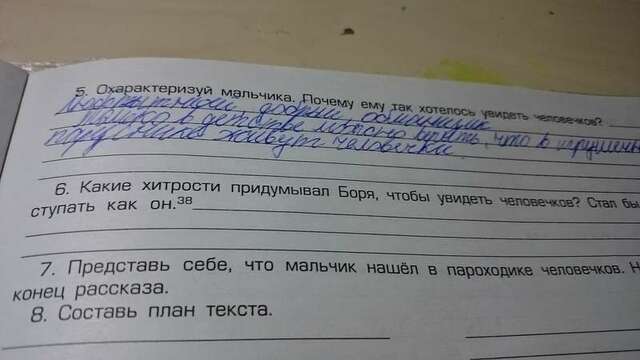 5. Охарактеризуй мальчика. Почему ему так хотелось увидеть человечков?
Любопытный, добрый, обманщик
Только в детстве можно верить, что в игрушечн
паруснике живут человечки.
6. Какие хитрости придумывал Боря, чтобы увидеть человечков? Стал бы
ступать как он.38
7. Представь себе, что мальчик нашёл в пароходике человечков. Н
конец рассказа.
8. Составь план текста.